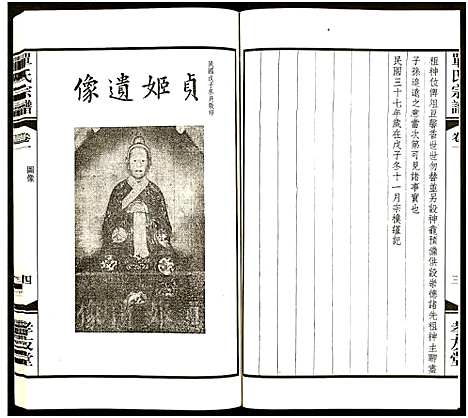 單氏宗譜
卷一
三
孝友堂
祖神位俾俎豆馨香世世勿替並另設神龕預備供設崇德諸先祖神主聊盡
子孫追遠之意當次第可見諸事實也
民國三十七年歲在戊子冬十一月宗樸謹記
民國戊子冬月敬繪
貞姬遺像
單氏宗譜
卷一
圖像
四
孝友堂